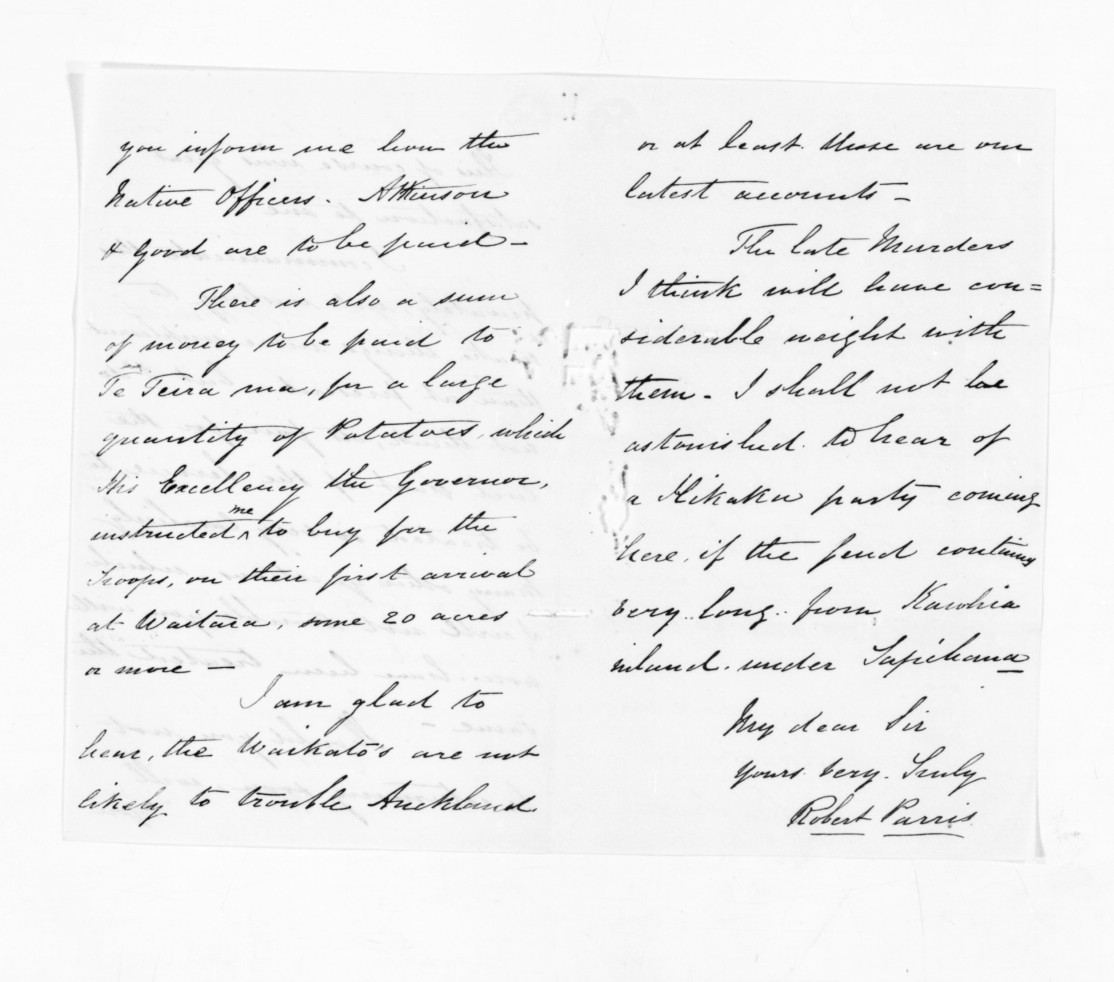 you inform me how the
Native Officers. Atkinson
& Good are to be paid —
There is also a sum
of money to be paid to
Te Teira ma, for a large
quantity of Potatoes, which
His Excellency the Governor,
instructed me to buy for the
troops, on their first arrival
at Waitara, some 20 acres
or more —
I am glad to
hear, the Waikato's are not
likely to trouble Auckland
or at least those are our
latest accounts —
The late Murders
I think will have con=
siderable weight with
them. I shall not be
astonished to hear of
a Hikaka party coming
here, if the feud continues
very long. from Kawhia
inland. under Tapihana
My dear Sir
Yours very Truly
Robert Parris